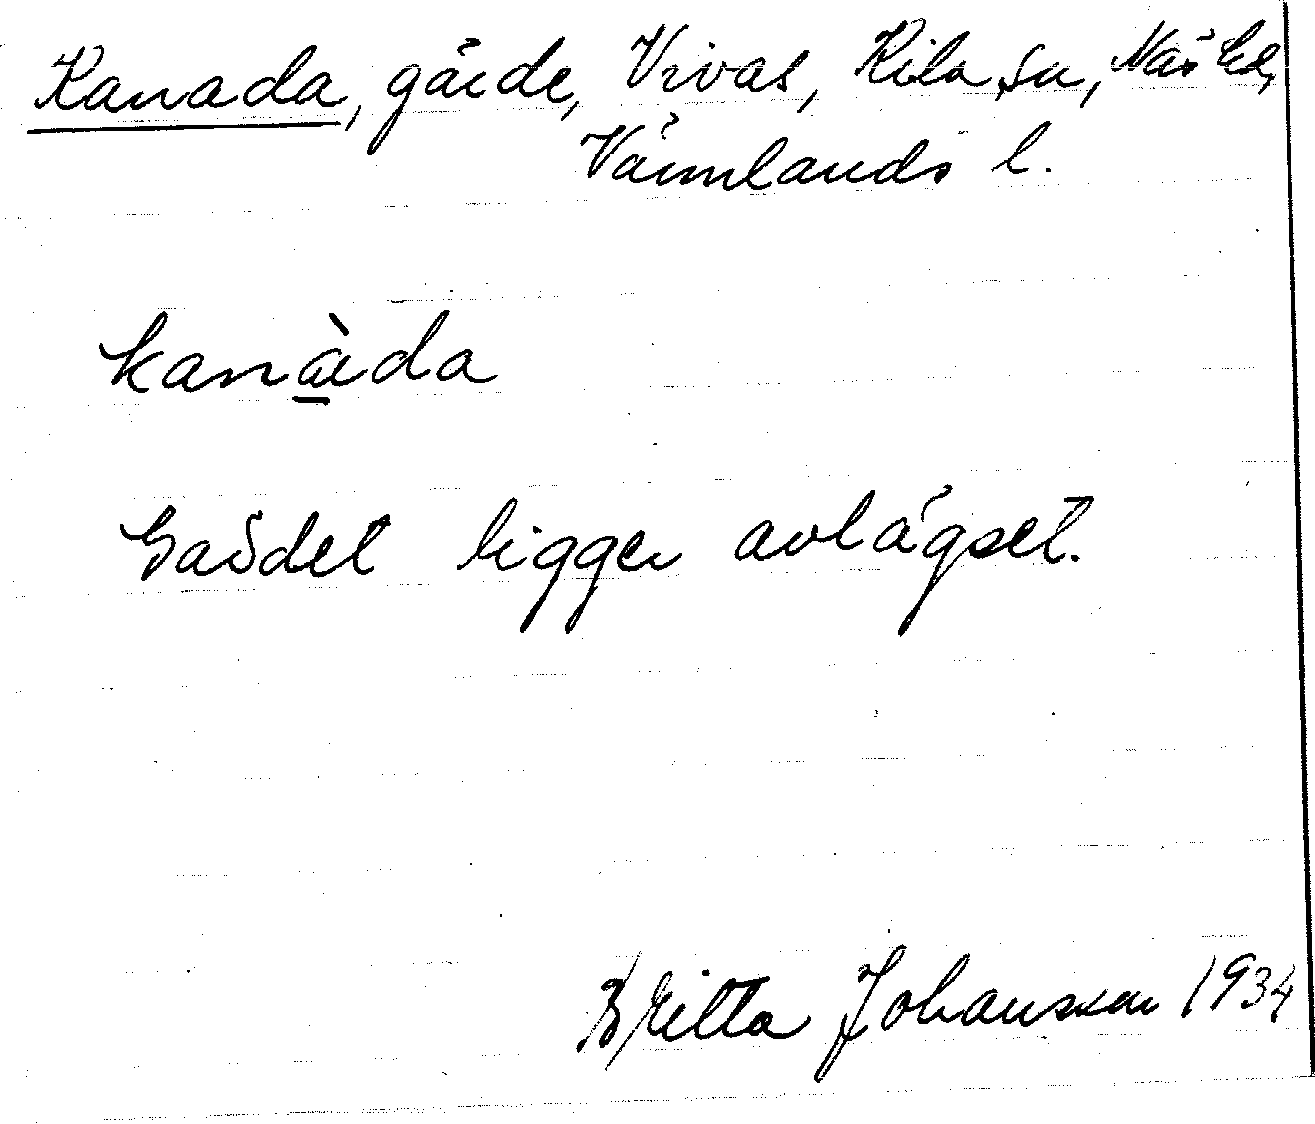 Kanada, gärde, Vivas, Kila sn, Näs hd,
Värmlands l.
kanàda
Gärdet ligger avlägset.
Britta Johansson 1934